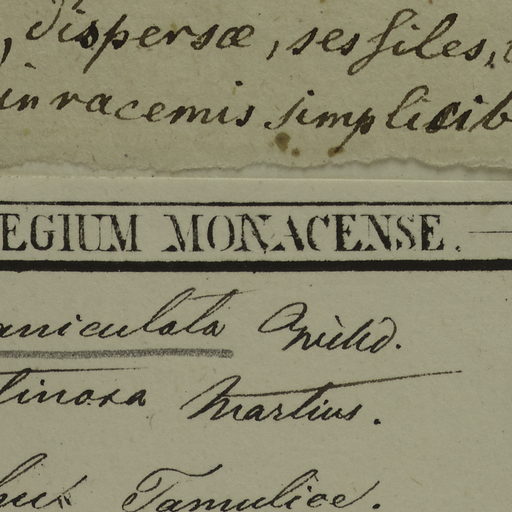 , dispersæ, sessiles,
in racemis simplicib
EGIUM MONACENSE.
aniculata Willd.
tinosa Martius.
Tamulice.